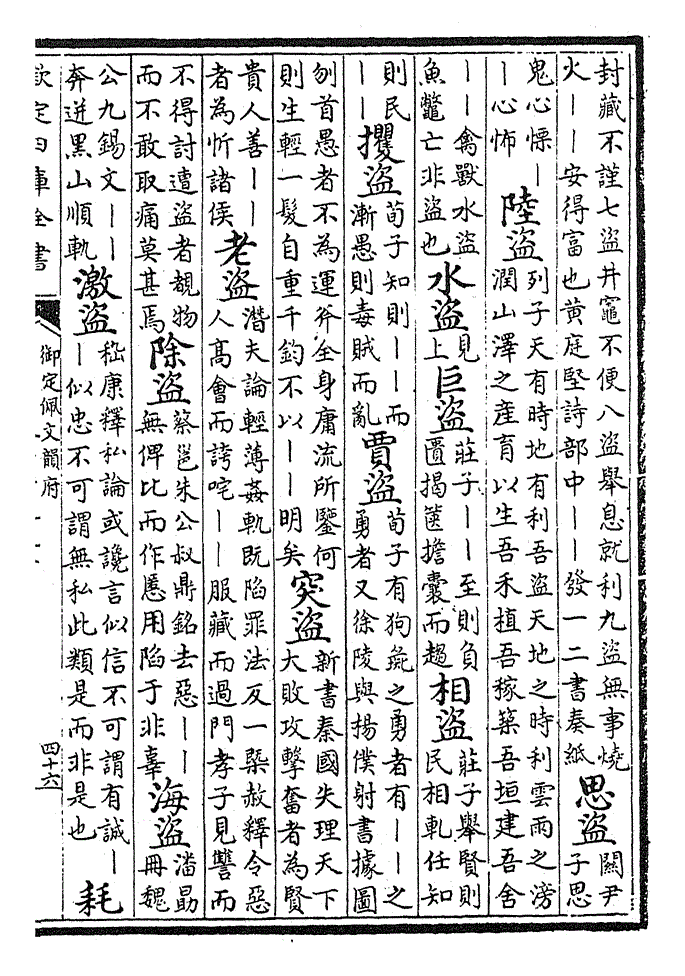 封藏不謹七盜井竈不便八盜舉息就利九盜無事燒
火丨丨安得富也黃庭堅詩部中丨丨發一二書奏紙
思盜
關尹
子思
鬼心慄丨
丨心怖
陸盜
列子天有時地有利吾盜天地之時利雲雨之滂
潤山澤之産育以生吾禾植吾稼築吾垣建吾舍
丨丨禽獸水盜
魚鼈亡非盜也
水盜
見
上
巨盜
莊子丨丨至則負
匱揭篋擔囊而趨
相盜
莊子舉賢則
民相軋任知
則民
丨丨
攫盜
荀子知則丨丨而
漸愚則毒賊而亂
賈盜
荀子有狗彘之勇者有丨丨之
勇者又徐陵與揚僕射書據圖
刎首愚者不為運斧全身庸流所鑒何
則生輕一髮自重千鈞不以丨丨明矣
突盜
新書秦國失理天下
大敗攻擊奮者為賢
貴人善丨丨
者為忻諸侯
老盜
潛夫論輕薄姦軌既陷罪法反一槩赦釋令惡
人高會而誇咤丨丨服藏而過門孝子見讐而
不得討遭盜者覩物
而不敢取痛莫甚焉
除盜
蔡邕朱公叔鼎銘去惡丨丨
無俾比而作慝用陷于非辜
海盜
潘勗
冊魏
公九錫文丨丨
奔迸黑山順軌
激盜
嵇康釋私論或讒言似信不可謂有誠丨
丨似忠不可謂無私此類是而非是也
耗
欽定四庫全書
御定佩文韻府
四十六